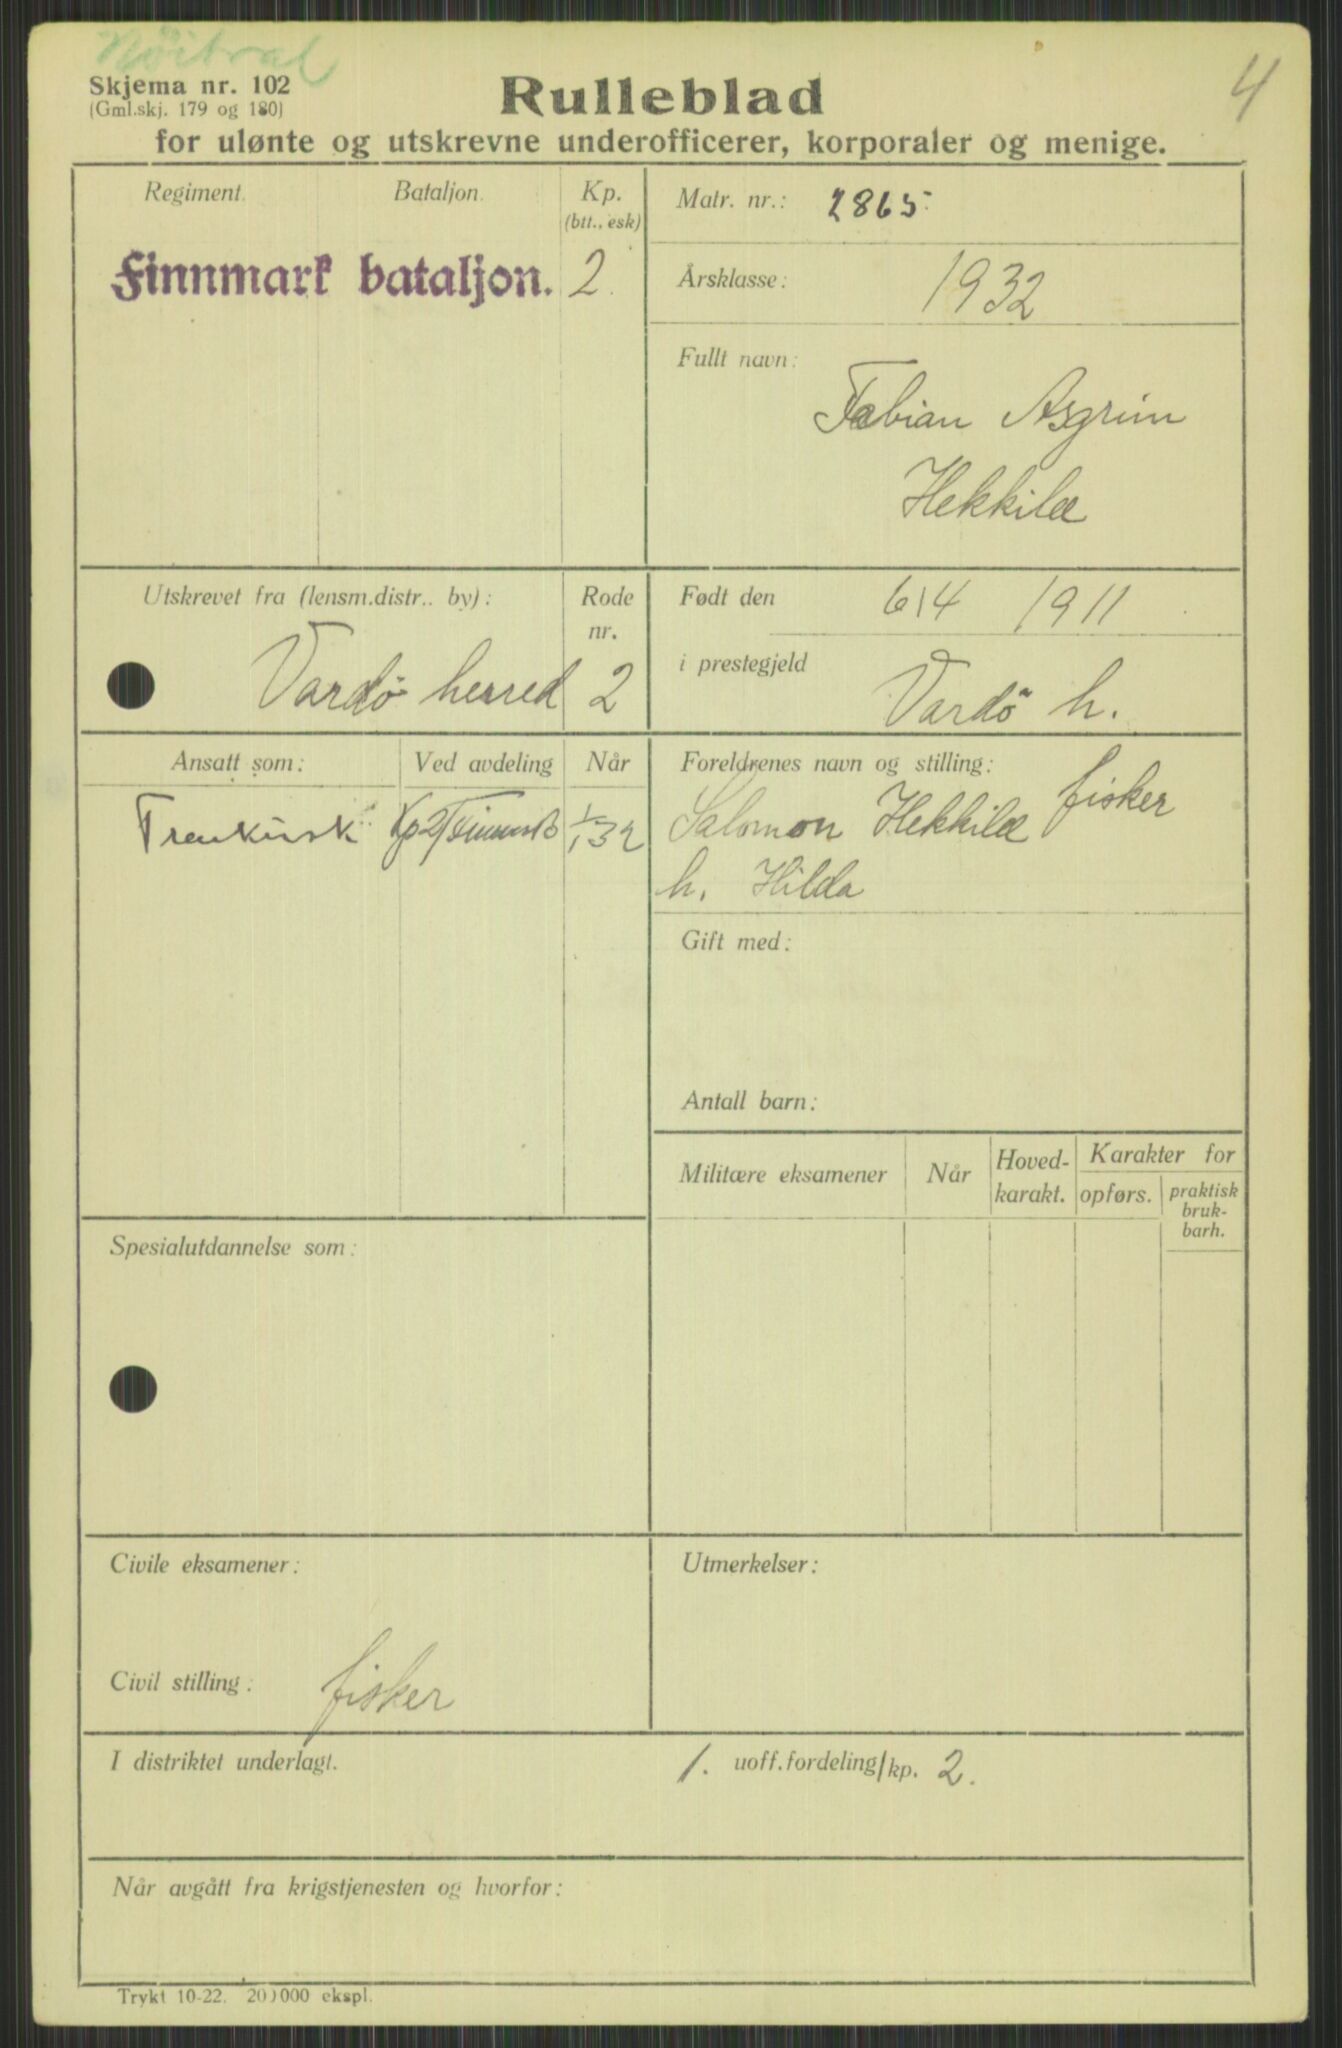 Nöitral
Skjema nr. 102
(Gml.skj. 179 og 180)
4
Rulleblad
for ulønte og utskrevne underofficerer, korporaler og menige.
Regiment. Bataljon. Kp.
(btt., esk)
Finnmark bataljon. 2.
Matr. nr.: 2865
Årsklasse: 1932
Fullt navn:
Fabian Asgrim
Hekkilæ
Utskrevet fra (lensm.distr.. by): Rode
nr.
Vardö herred 2
Født den 6/4 1911
i prestegjeld
Vardö h.
Ansatt som: Ved avdeling Når
Trenkusk Kp 2/FinnmB 1/1 32
Foreldrenes navn og stilling:
Salomon Hekkilæ fisker
h. Hilda
Gift med:
Antall barn:
Militære eksamener Når Hoved-
karakt. Karakter for
opførs. praktisk
bruk-
barh.
Spesialutdannelse som:
Civile eksamener:
Utmerkelser:
Civil stilling: fisker
I distriktet underlagt. 1. uoff.fordeling/kp. 2.
Når avgått fra krigstjenesten og hvorfor:
Trykt 10-22. 200000 ekspl.